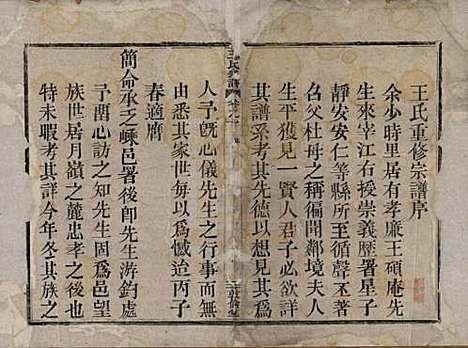 王氏重修宗譜序
余少時里居有孝廉王碩庵先
生來宰江右授崇義歷署星子
靜安安仁等縣所至循聲丕著
召父杜母之稱徧聞鄰境夫人
生平獲見一賢人君子必欲詳
其譜系考其先德以想見其為
人予旣心儀先生之行事而無
由悉其家世每以為憾造丙子
春適膺
簡命承乏嵊邑署後卽先生游釣處
予留心訪之知先生固為邑望
族世居月嶺之麓忠孝之後也
特未暇考其詳今年冬其族之